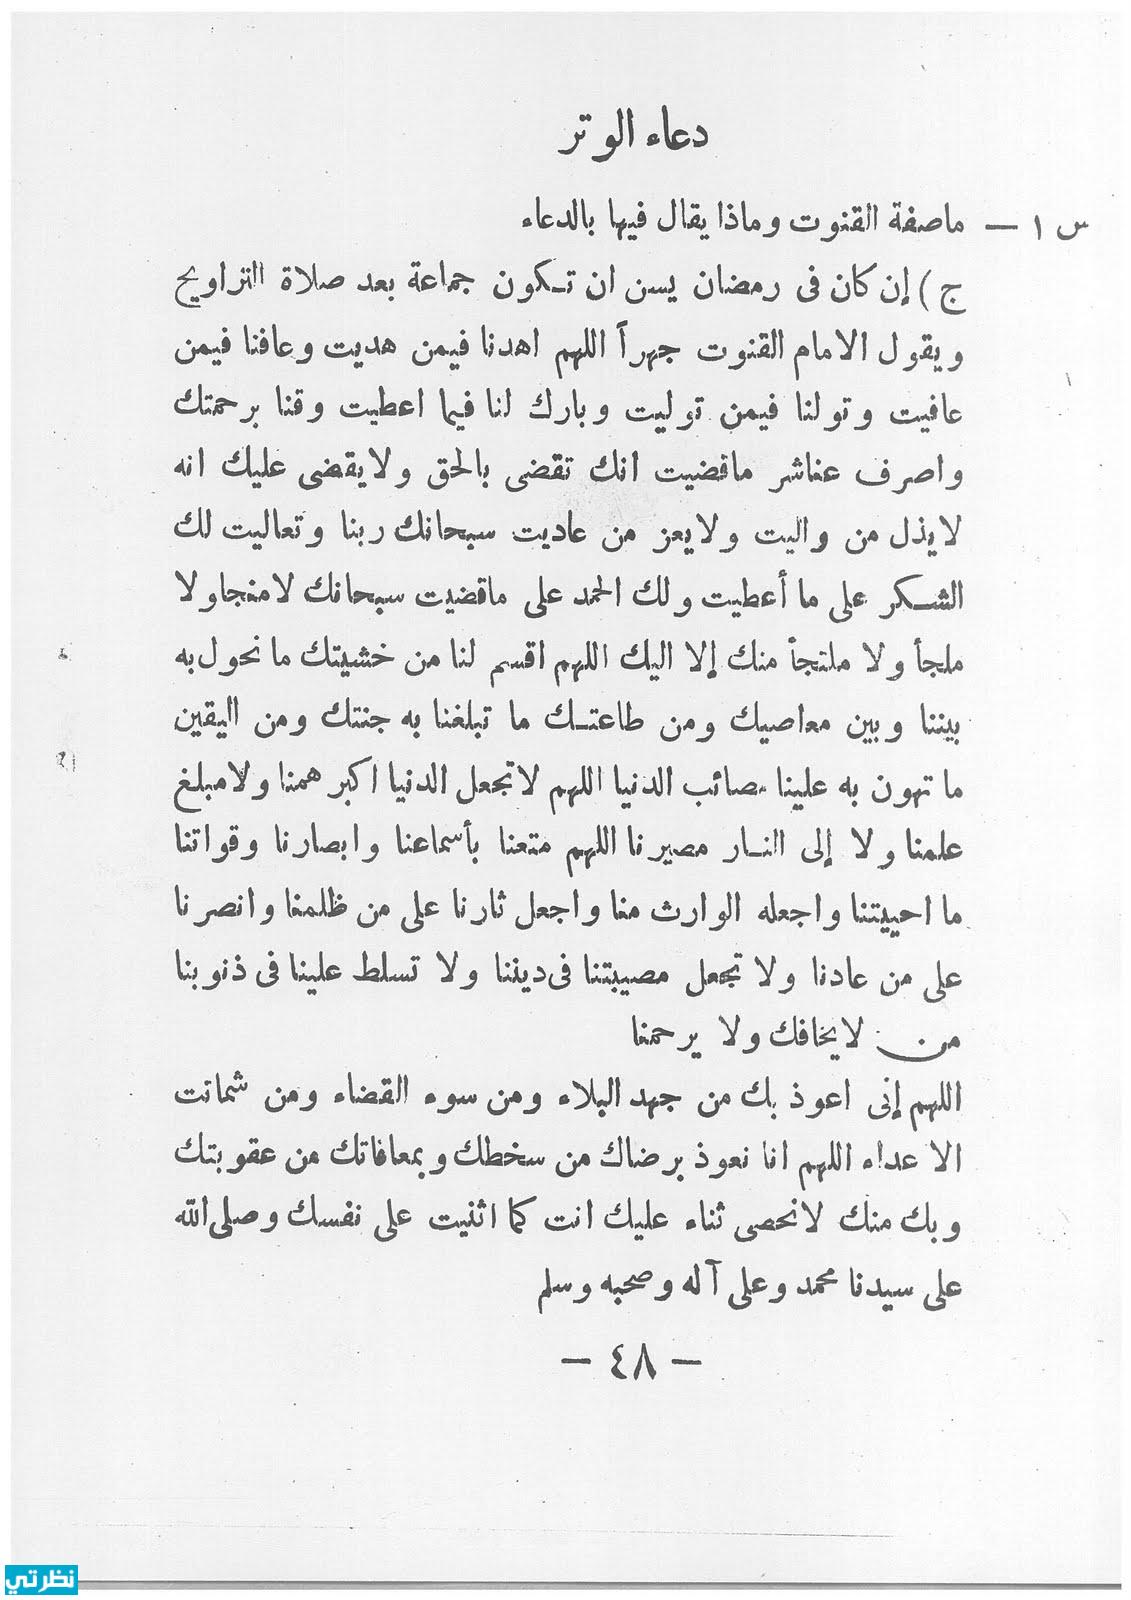 دعاء الوتر
س ١ — ماصفة القنوت وماذا يقال فيها بالدعاء
ج ) إن كان فى رمضان يسن ان تكون جماعة بعد صلاة التراويح
ويقول الامام القنوت جهراً اللهم اهدنا فيمن هديت وعافنا فيمن
عافيت وتولنا فيمن توليت وبارك لنا فيما اعطيت وقنا برحمتك
واصرف عناشر ماقضيت انك تقضى بالحق ولايقضى عليك انه
لايذل من واليت ولايعز من عاديت سبحانك ربنا وتعاليت لك
الشكر على ما أعطيت ولك الحمد على ماقضيت سبحانك لامنجاولا
ملجأ ولا ملتجأ منك إلا اليك اللهم اقسم لنا من خشيتك مانحول به
بيننا وبين معاصيك ومن طاعتك ما تبلغنا به جنتك ومن اليقين
ماتهون به علينا مصائب الدنيا اللهم لاتجعل الدنيا اكبر همنا ولامبلغ
علمنا ولا إلى النار مصيرنا اللهم متعنا بأسماعنا وابصارنا وقواتنا
ما احييتنا واجعله الوارث منا واجعل ثارنا على من ظلمنا وانصرنا
على من عادنا ولا تجعل مصيبتنا فى ديننا ولا تسلط علينا فى ذنوبنا
من لايخافك ولا يرحمنا
اللهم إنى اعوذ بك من جهد البلاء ومن سوء القضاء ومن شماتت
الاعداء اللهم انا نعوذ برضاك من سخطك وبمعافاتك من عقوبتك
وبك منك لانحصى ثناء عليك انت كما اثنيت على نفسك وصلى الله
على سيدنا محمد وعلى آله وصحبه وسلم
— ٤٨ —
نظرتي